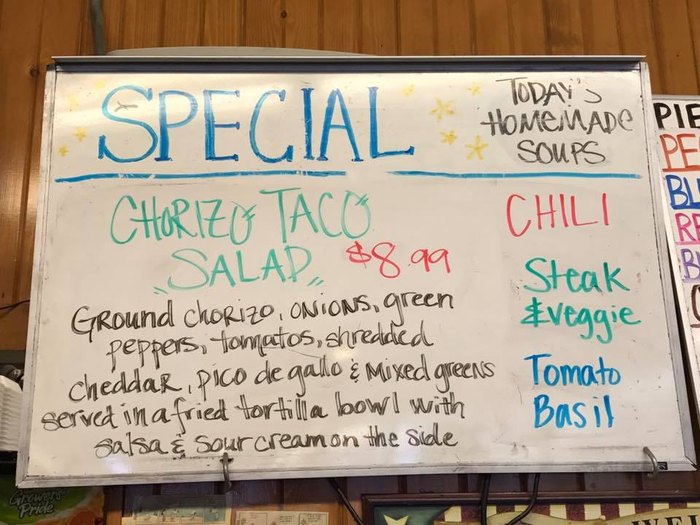 SPECIAL
CHORIZO TACO
SALAD
$8.99
GROUND CHORIZO, ONIONS, green
peppers, tomatos, shredded
cheddar, pico de gallo & mixed greens
served in a fried tortilla bowl with
salsa & sour cream on the side
TODAY'S
HOMEMADE
SOUPS
CHILI
Steak
& veggie
Tomato
Basil
PIE
PE
BL
R
B
Growers'
Pride